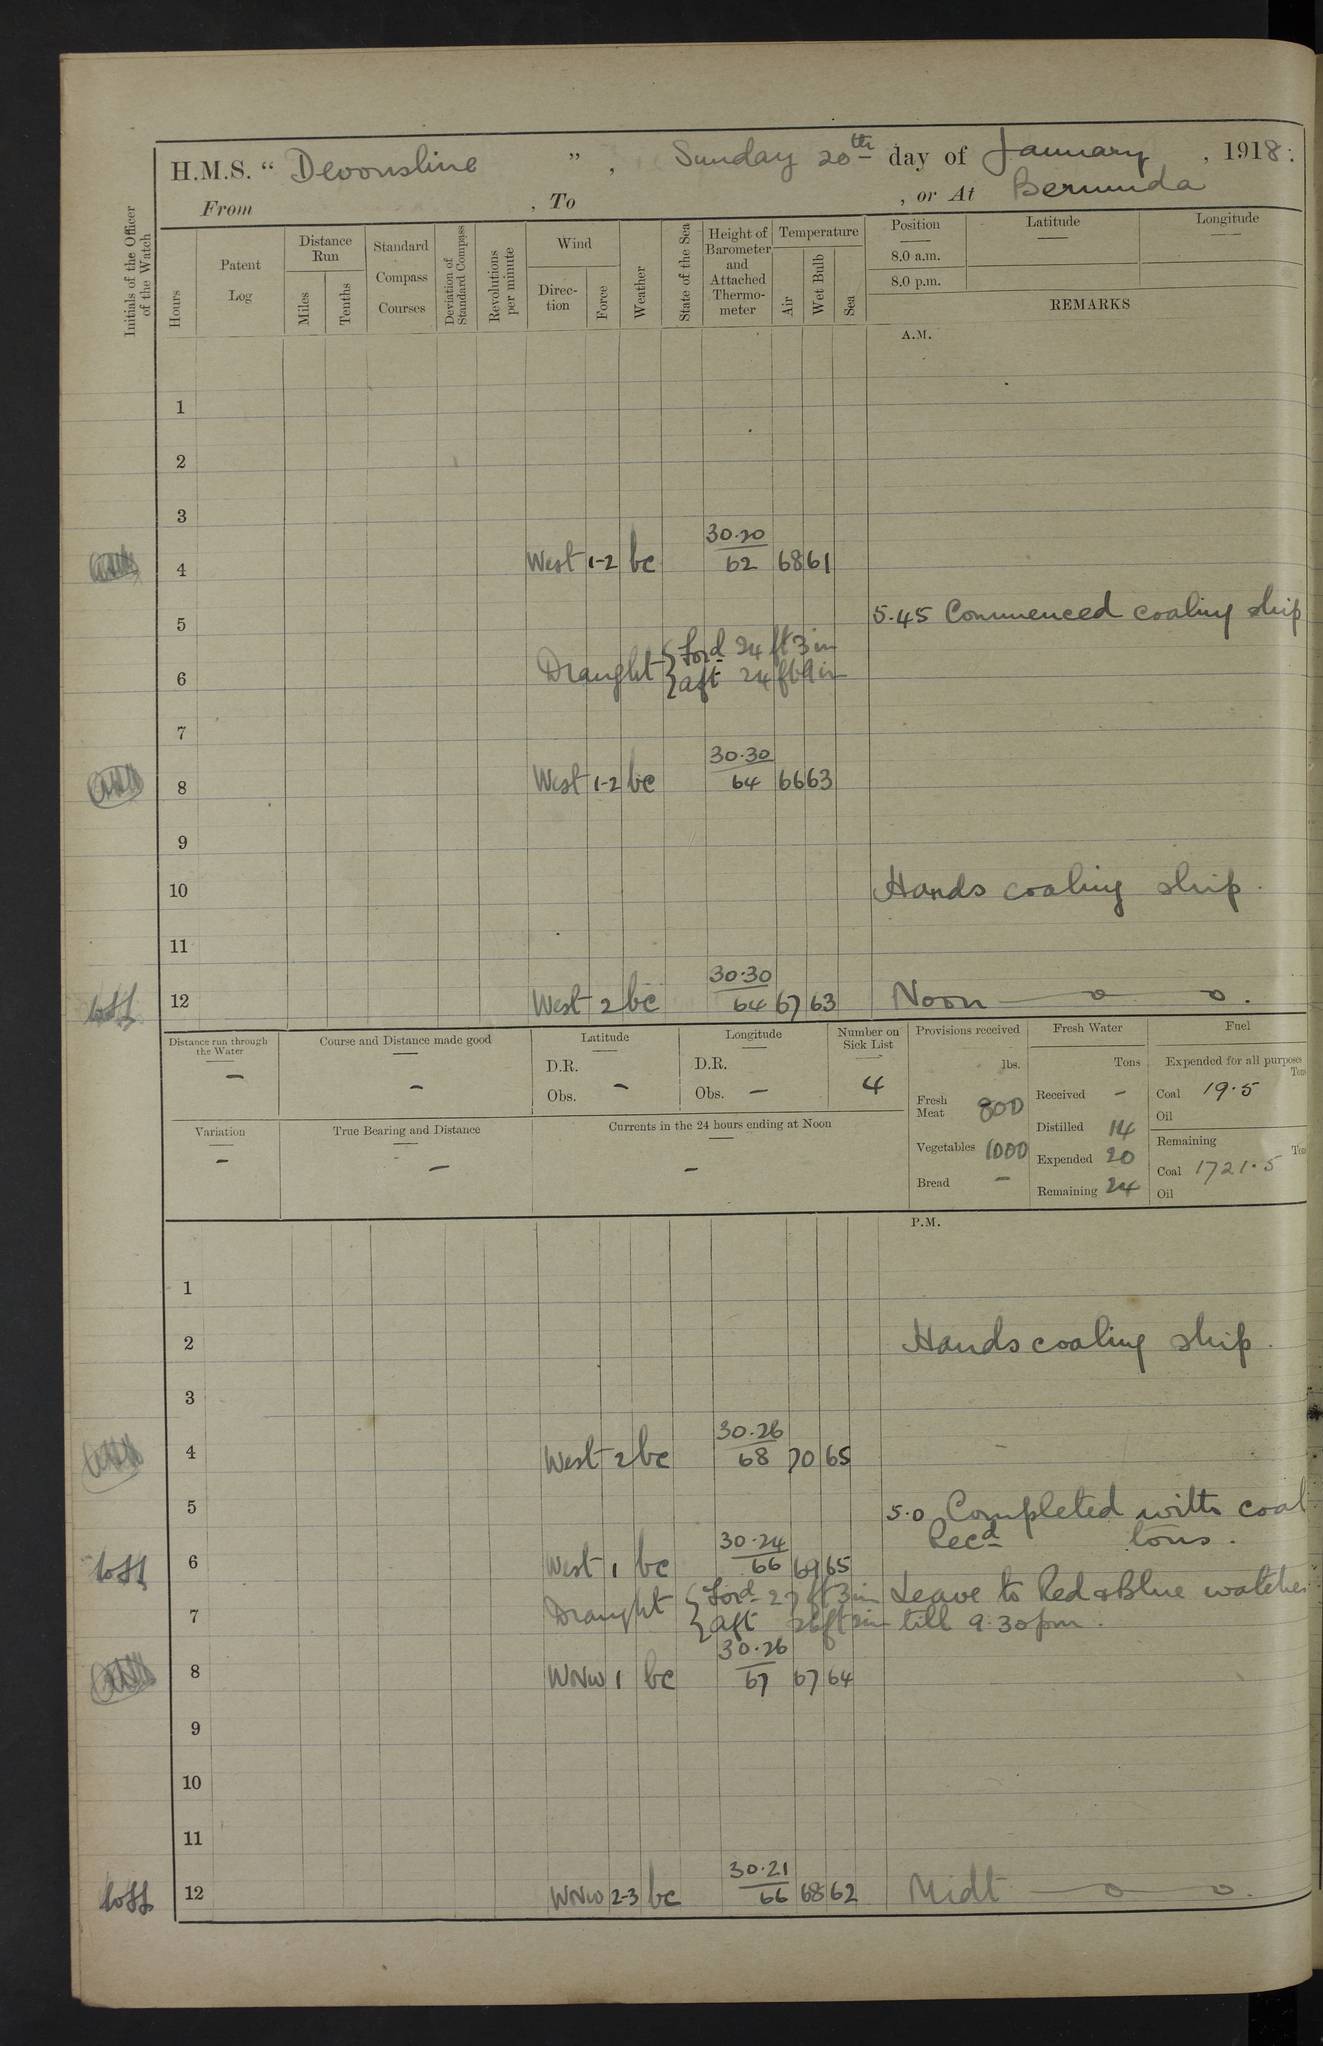 H.M.S. “ Devonshire ” , Sunday 20th day of January , 1918.
From , To , or At Bermuda
Initials of the Officer of the Watch
Hours
Patent Log
Distance Run
Miles
Tenths
Standard Compass Courses
Deviation of Standard Compass
Revolutions per minute
Wind
Direction
Force
Weather
State of the Sea
Height of Barometer and Attached Thermometer
Temperature
Air
Wet Bulb
Sea
Position
8.0 a.m.
8.0 p.m.
Latitude
Longitude
REMARKS
A.M.
1
2
3
4 West 1-2 bc 30.20 62 68 61
5 5.45 Commenced coaling ship
6 Draught { Ford 24 ft 3 in
aft 24 ft 9 in
7
8 West 1-2 bc 30.30 64 66 63
9
10 Hands coaling ship.
11
12 West 2 bc 30.30 64 67 63 Noon
Distance run through the Water –
Course and Distance made good –
Latitude D.R. Obs. –
Longitude D.R. Obs. –
Number on Sick List 4
Provisions received lbs.
Fresh Meat 800
Vegetables 1000
Bread –
Fresh Water Tons
Received –
Distilled 14
Expended 20
Remaining 24
Fuel
Expended for all purposes Tons
Coal 19.5
Oil
Remaining Tons
Coal 1721.5
Oil
Variation –
True Bearing and Distance –
Currents in the 24 hours ending at Noon –
P.M.
1
2 Hands coaling ship.
3
4 West 2 bc 30.26 68 70 65
5 5.0 Completed with coal
Recd tons.
6 West 1 bc 30.24 66 69 65
7 Draught { Ford 27 ft 3 in Leave to Red & Blue watches
aft 26 ft 2 in till 9.30 pm.
8 WNW 1 bc 30.26 67 67 64
9
10
11
12 WNW 2-3 bc 30.21 66 68 62 Midt